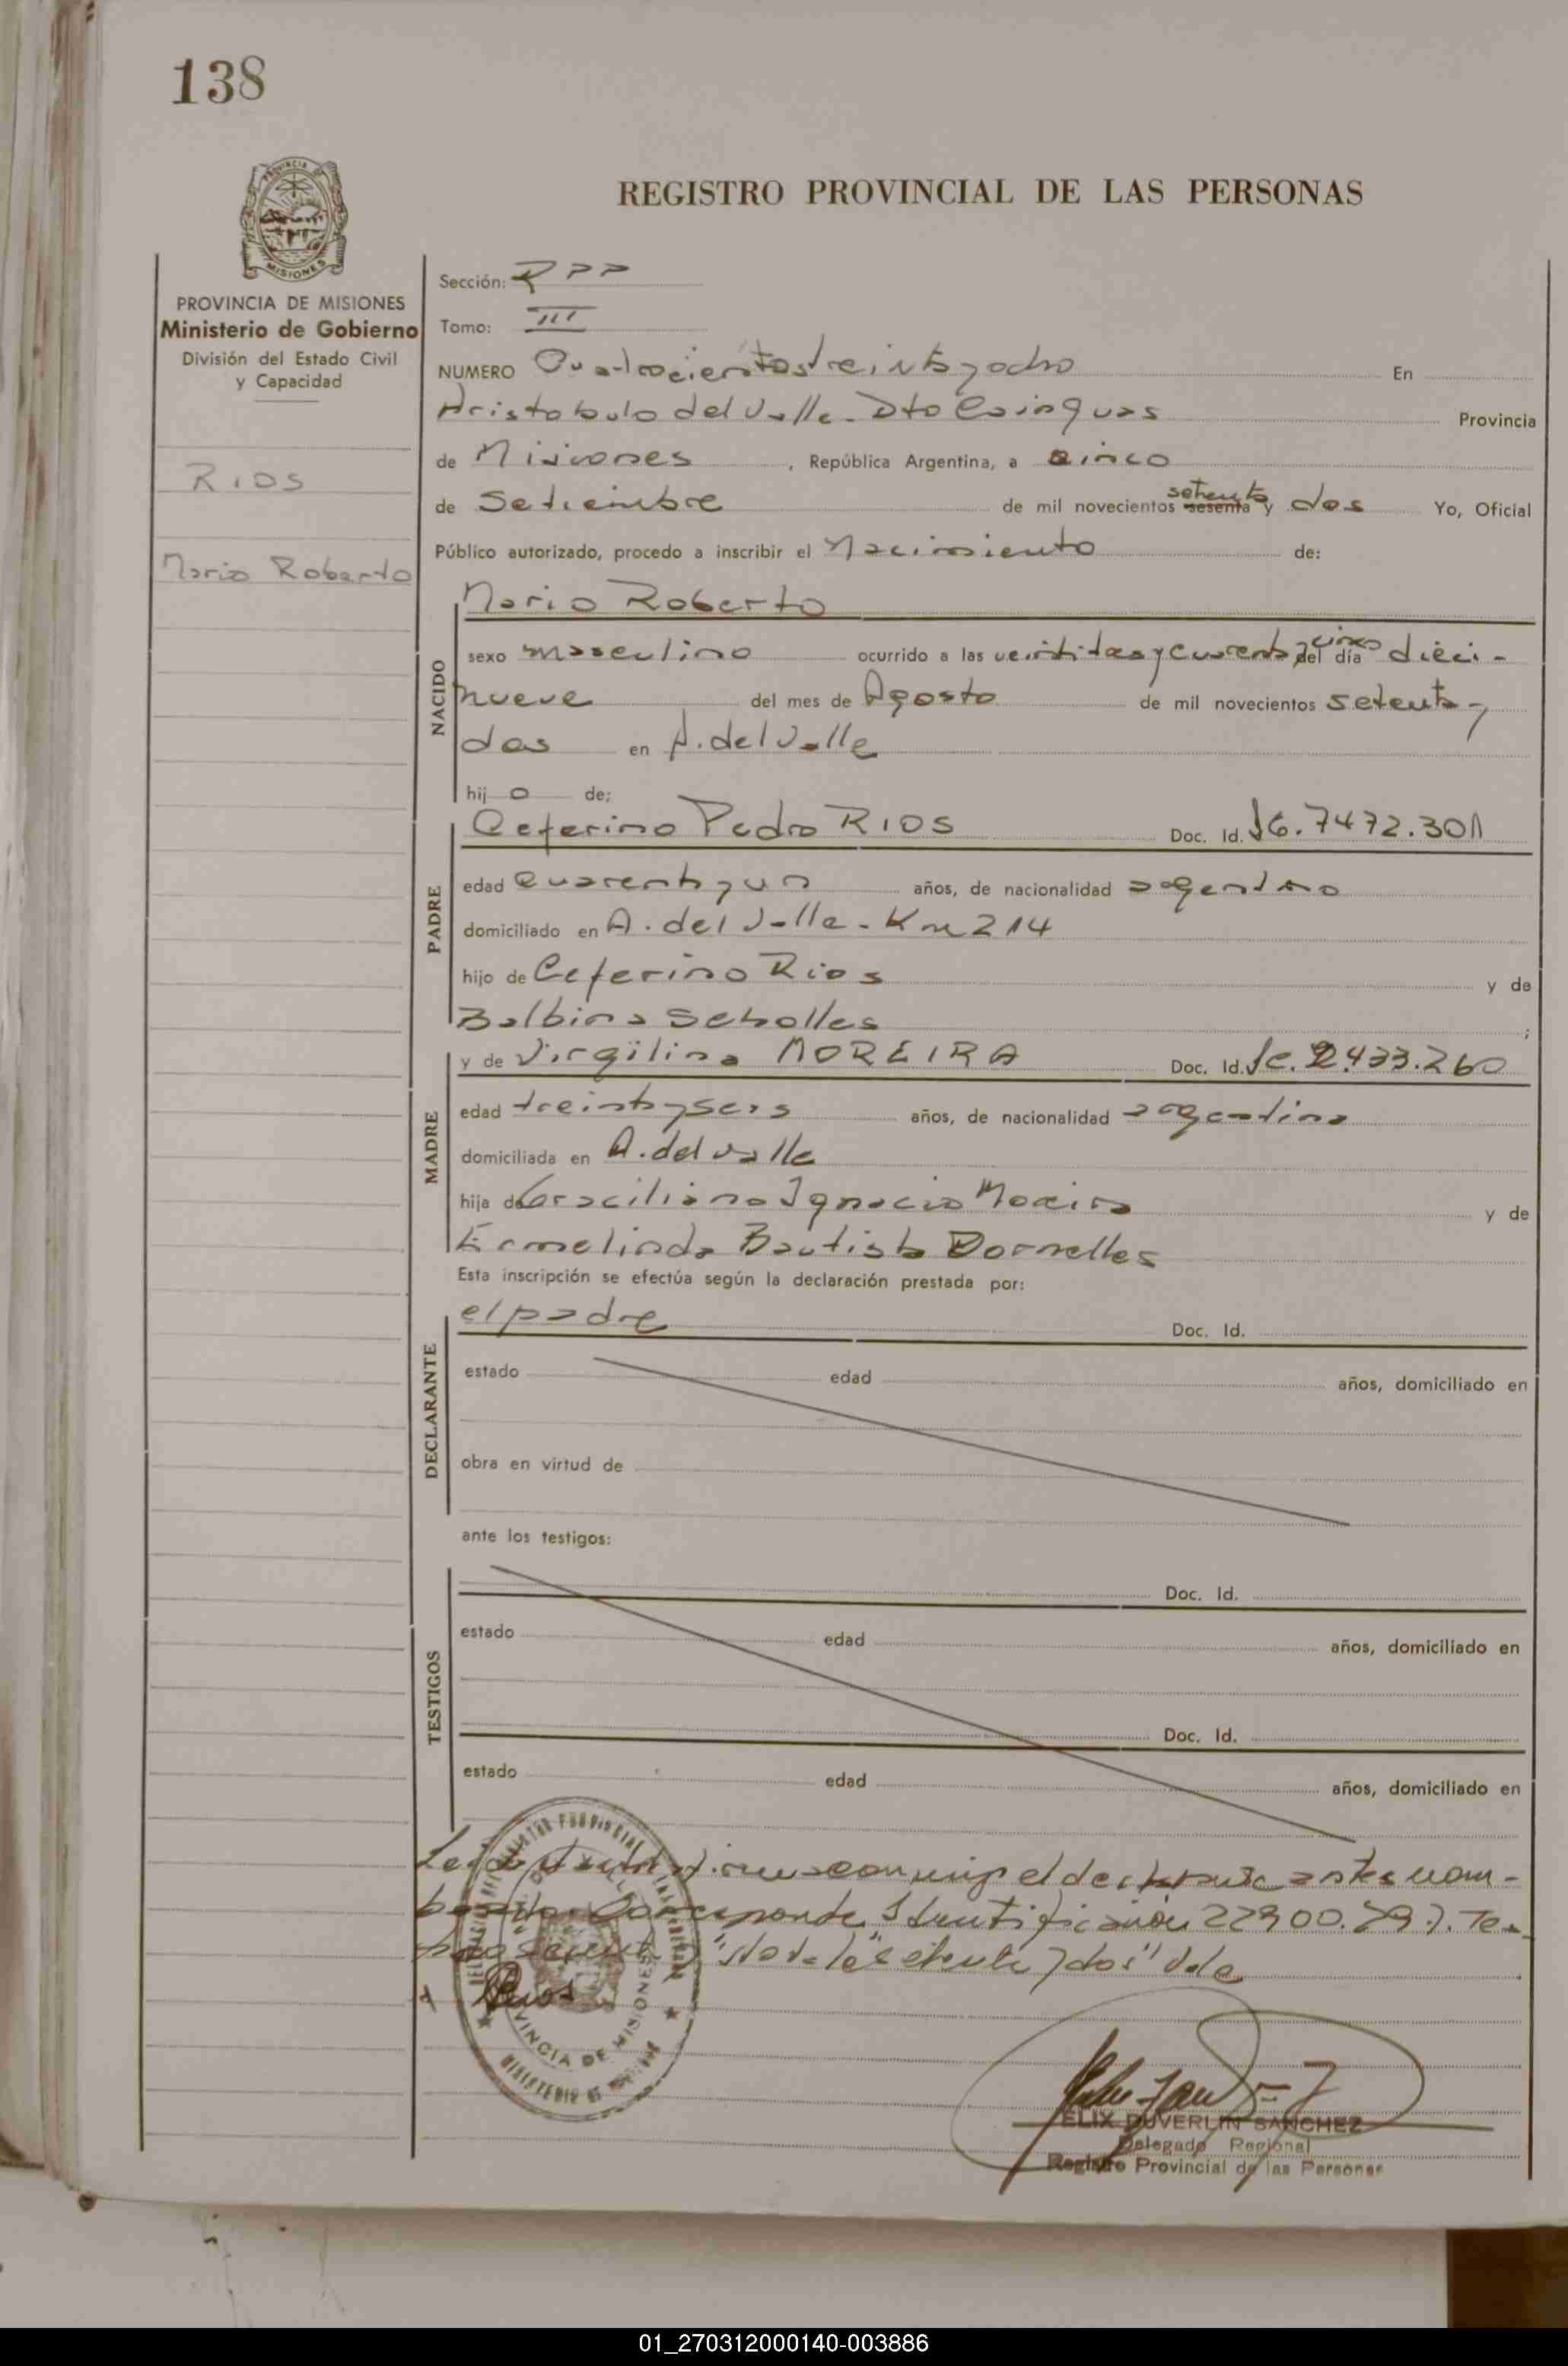 138
PROVINCIA DE MISIONES
REGISTRO PROVINCIAL DE LAS PERSONAS
PROVINCIA DE MISIONES
Ministerio de Gobierno
División del Estado Civil
y Capacidad
RIOS
Mario Roberto
Sección: RPP
Tomo: III
NUMERO Cuatrocientos treinta y ocho En
Aristobulo del Valle - Dto Cainguas Provincia
de Misiones, República Argentina, a cinco
de Setiembre de mil novecientos sesenta setenta y dos Yo, Oficial
Público autorizado, procedo a inscribir el Nacimiento de:
NACIDO
Mario Roberto
sexo masculino ocurrido a las y cuarenta y cinco del día dieci-
nueve del mes de Agosto de mil novecientos setenta y
dos en A. del Valle
hijo de:
PADRE
Ceferino Pedro RIOS Doc. Id. 7472.301
edad cuarenta y un años, de nacionalidad argentino
domiciliado en A. del Valle - Km 214
hijo de Ceferino Rios y de
Balbina ;
MADRE
y de Virgilina MOREIRA Doc. Id. 2.433.260
edad treinta y seis años, de nacionalidad argentina
domiciliada en A. del Valle
hija de Graciliano Ignacio Moreira y de
Ermelinda Bautista Dornelles
Esta inscripción se efectúa según la declaración prestada por:
DECLARANTE
el padre Doc. Id.
estado edad años, domiciliado en
obra en virtud de
ante los testigos:
TESTIGOS
Doc. Id.
estado edad años, domiciliado en
Doc. Id.
estado edad años, domiciliado en
Leida el acta firma conmigo el declarante antes nom-
brado. Corresponde Identificación
"setenta y dos" Vale
Rios
PROVINCIA DE MISIONES
MINISTERIO DE
ELIX DUVERLIN SANCHEZ
Delegado Regional
Registro Provincial de las Personas
01_270312000140-003886